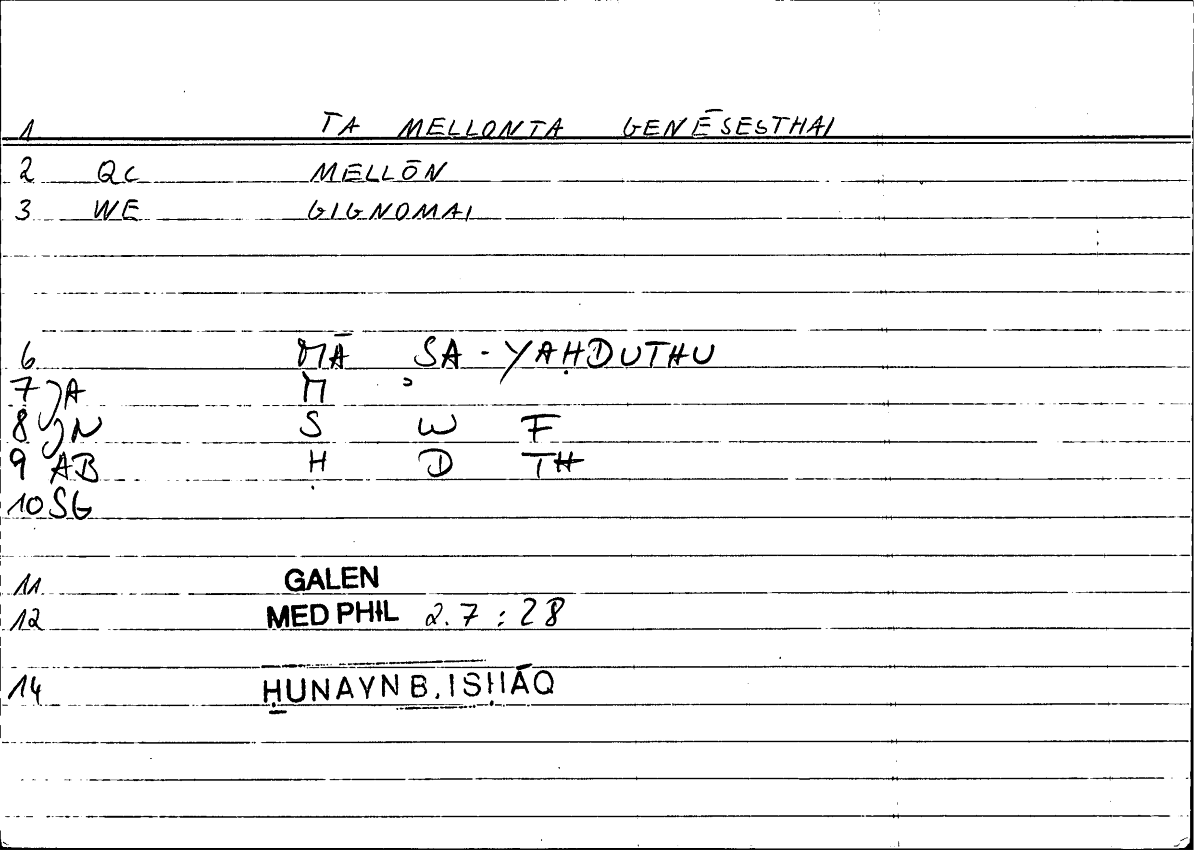 1 TA MELLONTA GENĒSESTHAI
2 QC MELLŌN
3 WE GIGNOMAI
6 MĀ SA-YAḤDUTHU
7 JA M ᵓ
8 JN S W F
9 AB Ḥ D TH
10 SG
11 GALEN
12 MED PHIL 2.7 : 28
14 ḤUNAYN B. ISḤĀQ